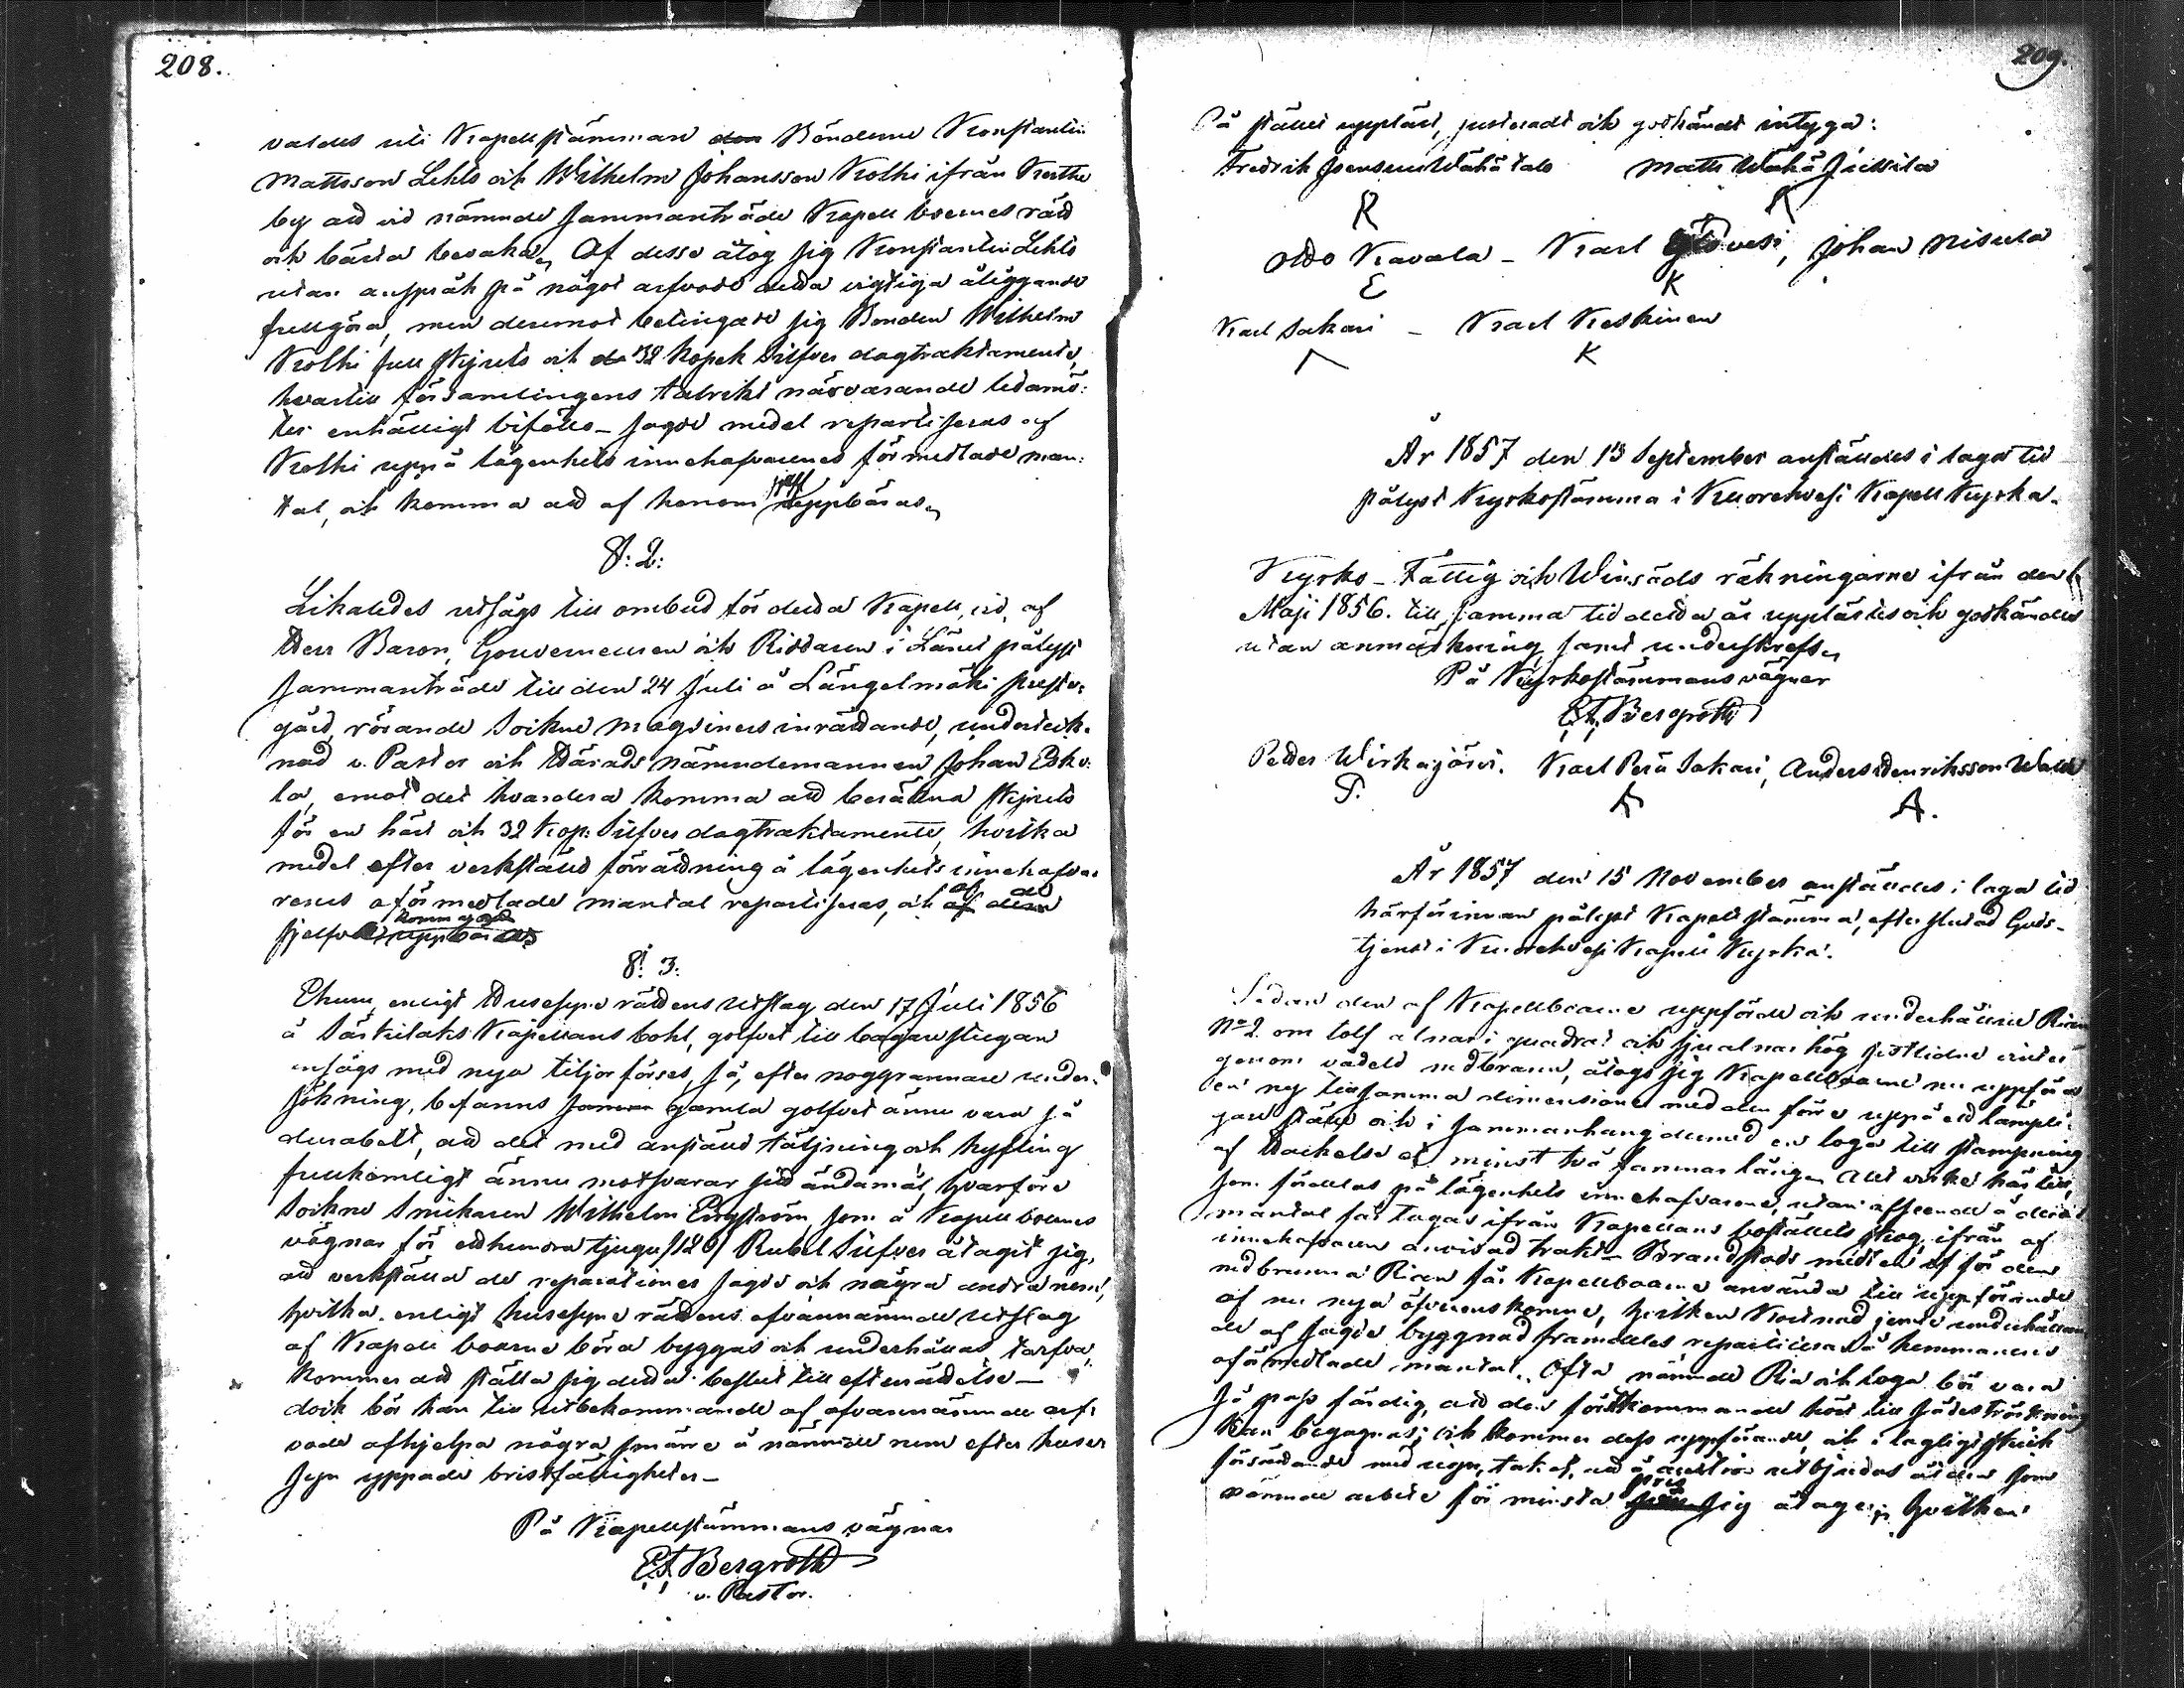 208.
valdes uti Kapellstämman den Bönderne Konstantin
Mattsson Lehto och Wilhelm Johansson Kolhi ifrån Kertte
by att vid nämnde sammanträde Kapell boernes rätt
och bästa bevaka, Af desse åtog sig Konstantin Lehto
utan anspråk på något arfvode detta vigtiga åliggande
fullgöra, men deremot betingade sig Bonden Wilhelm
Kolhi full skjuts och de 32 kopek Silfver dagtraktamente,
hvartill församlingens talrikt närvarande ledamö:
ter enhälligt biföllo – sagde medel repartiseras af
Kolhi uppå lägenhets innehafvarenes förmedlade man:
tal, och komma att af honom sjelf uppbäras,
§: 2:
Likaledes utsågs till ombud för detta Kapell, vid, af
Herr Baron, Gouverneuren och Riddaren i Länet pålyst
sammanträde till den 24 Juli å Längelmäki prestv:
gård, rörande Sockne magsiners inrättande, underteck-
nad v. Pastor och Härads nämndemannen Johan Esko:
la, emot det hvardera komma att beräkna skjuts
för en häst och 32 kop: Silfver dagtraktamente, hvilka
medel efter verkställd förrättning å lägenhets innehafva-
renes oförmedlade mantal repartiseras, och af af dem
sjelfve komma att uppbäras
§: 3:
Ehuru enligt Husesyns rättens utslag den 17 Juli 1856
å Särkilaks Kapellans bohl, golfvet till bagarstugan
ansågs med nya tiljor förses, så, efter noggrannare under-
sökning, befanns samma gamla golfvet ännu vara så
durabelt, att det med anställd täljning och hyfling
fullkomligt ännu motsvarar sitt ändamål, hvarföre
Sockne Snickaren Wilhelm Engström som å Kapell boernes
vägnar för etthundra tjugu /120/ Rubel Silfver åtagit sig,
att verkställa de reparationer sagde och några andra rum,
hvilka enligt husesyns rättens ofvannämnde utslag
af Kapell boerne böra byggas och underhållas tarfva,
kommer att ställa sig detta beslut till efterrättelse –
dock bör han till utbekommande af ofvannämnde arf-
vode afhjelpa några smärre å nämnde rum efter huse
syn yppade bristfälligheter –
På Kapellstämmans vägnar
E.A. Bergroth
v. Pastor.
209.
På stället uppläst, justeradt och godkändt intyga:
Fredrik Joensuu Wähätalo Matts Wähä Jussila
R K
Otto Kavala – Karl Ylövesi, Johan Nisula
E K
Karl Sakari – Karl Keskinen
K
År 1857 den 13 September anställdes i laga tid
pålyst Kyrkostämma i Kuorehvesi Kapell Kyrka.
Kyrko – Fattig och Winsäds räkningarne ifrån den 1
Maji 1856. till samma tid detta år upplästes och godkändes
utan anmärkning samt underskrefs,
På Kyrkostämmans vägnar
E.A. Bergroth
Petter Wirkajärvi. Karl Perä Sakari, Anders Henriksson
P. K A.
År 1857 den 15 November anställdes i laga tid
härförinnan pålyst Kapell stämma, efter slutad Guds-
tjenst i Kuorehvesi Kapell Kyrka.
Sedan den af Kapellboerne uppförde och underhållne Rian
No 2. om tolf alnar i quadrat och sju alnar hög sistlidne vinter
genom vådeld nedbrann, åtogo sig Kapellboerne nu uppföra
en ny till samma dimensioner med den förre uppå ett lämpli-
gare ställe och i sammanhang dermed en loga till stampning
af Hackelse af minst två famnar lång. Allt virke här till,
som fördelas på lägenhets innehafvarene, utan afseende å deras
mantal får tagas ifrån Kapellans boställets skog, ifrån af
innehafvaren anvisad trakt – Brandstods medlen af för den
nedbrunna Rian får Kapellboerne använda till uppförande
af nu nya öfverenskomne, hvilken kostnad jemte underhållan-
de af sagde byggnad framdeles repartiseras å hemmanens
oförmedlade mantal. Ofta nämnde Ria och loga bör vara
så pass färdig, att den förstkommande höst till sädeströskning
kan begagnas; och kommer dess uppförande, och i lagligt skick
försättande med ugn, tak etc. att å auction utbjudas åt den som
nämnde arbete för minsta pris sig åtager; hvilken